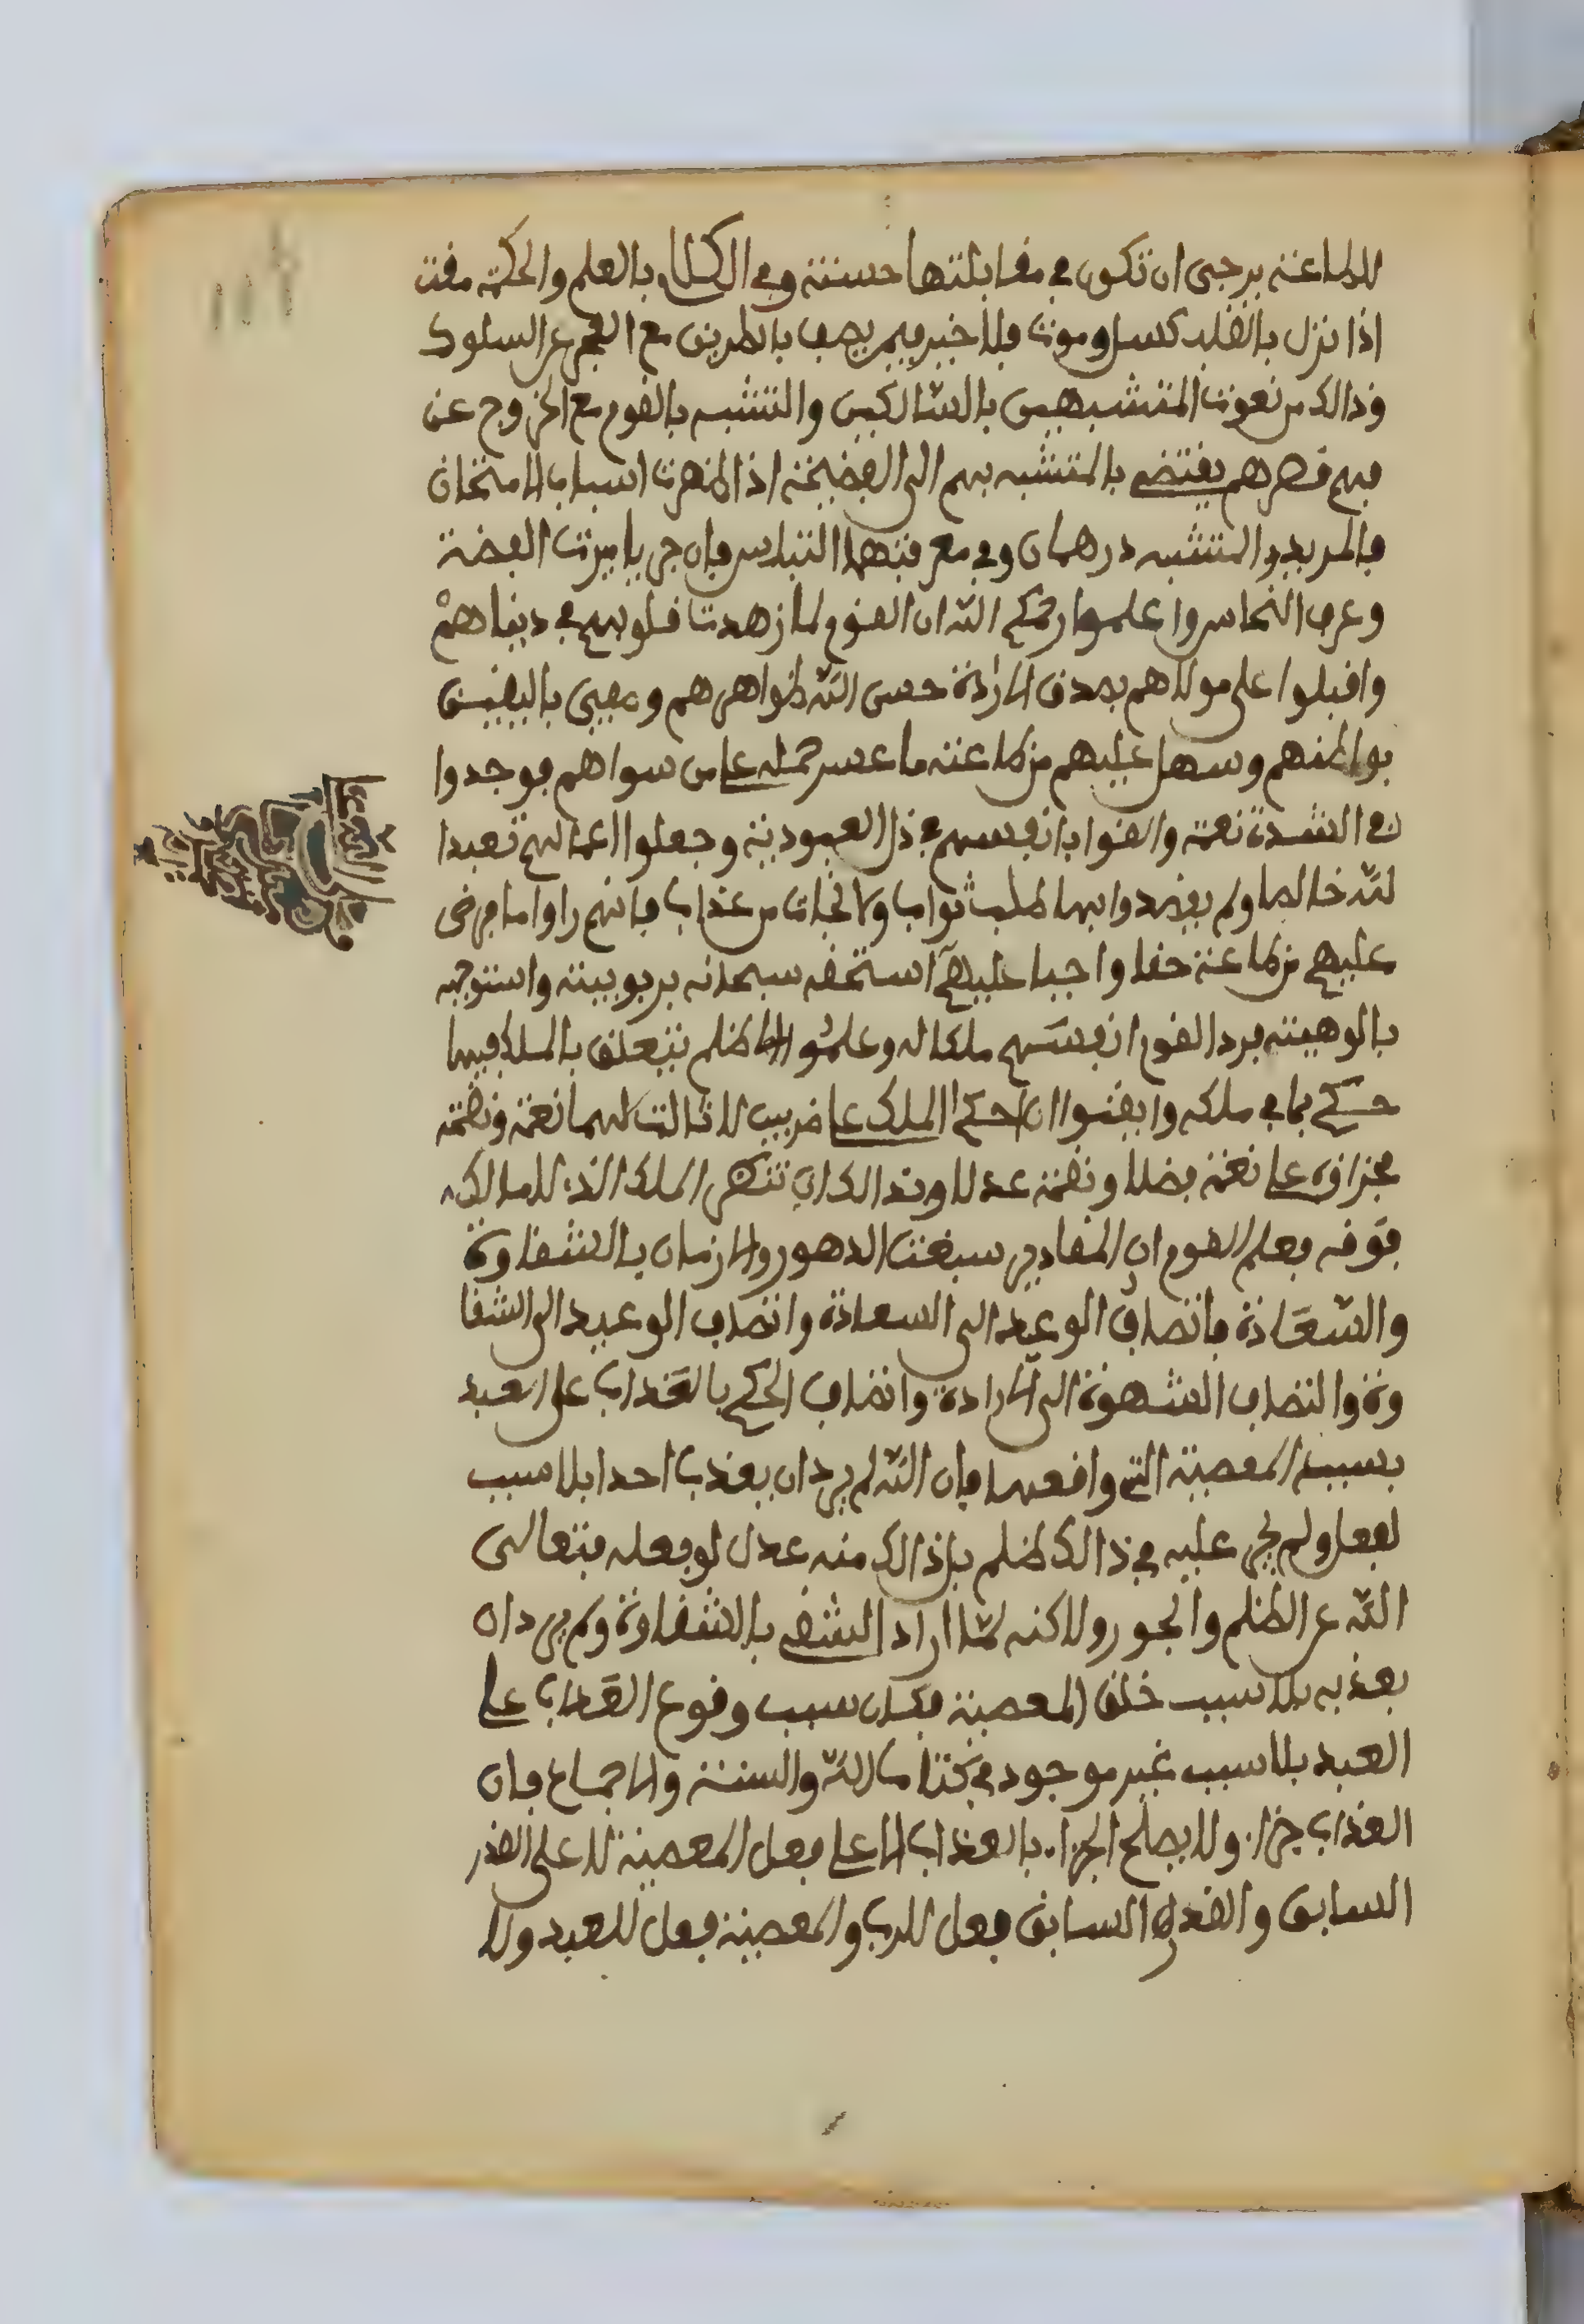 للطاعة يرجى ان تكون في مقابلتها حسنة وفي الكسل بالعلم والحكمة مقت
اذا نزل بالقلب كسل وموت فلا خير فيمن يصف بالطريق مع العجز عن السلوك
وذالك من نعوت المتشبهين بالسّالكين والتشبه بالقوم مع الخروج عن
فهم قصرهم يفتضي بالمتشبه بهم الى الفضيحة اذا ظهرت اسباب الامتحان
فالمريد والمتشبه درهمان وفي معرفتهما التباس فان جريا ميزت الفضة
وعرف النحاس واعلموا رحمكم اللّه ان القوم لما زهدت قلوبهم في دنياهمْ
واقبلوا على مولاهم بصدق الارادة حسن اللّه ظواهرهم و بالبقين
بواطنهم وسهل عليهم من طاعته ما عسر حمله على من سواهم فوجدوا
في الشدة نعمة والقوا بانفسهم في ذل العبودية وجعلوا اعمالهم تعبدا
للّه خالصا ولم يقصدوا بها طلب ثواب ولا نجات من عذاب فانهم راوا ما فرض
عليهم من طاعته حقا واجبا عليهم استحقه سبحانه بربوبيته واستوجبه
بالوهيته فرد القوم انفسهم ملكا له وعلموا الا ظلم يتعلق بالملك فيما
حكم بما في ملكه وايقنوا ان احكم الملك على ضربين لا ثالث لهما نعمة ونقمة
نعمة فضلا ونقمة عدلا وبذالك الملك الذي لا مالك
فوقه فعلم القوم ان المقادير سبقت الدهور والازمان بالشقاوة
والسّعَادة فانصاف الوعد الى السعادة وانضاف الوعيد الى الشقا
وة وانضاف الشهوة الى الارادة وانضاف الحكم بالعَذاب على العبد
بسبب المعصية التي واقعها فان اللّه لم يرد ان يعذب احدا بلا سبب
لفعل ولم يجر عليه في ذالك ظلم بل ذالك منه عدل لو فعله فتعالى
اللّه عن الظلم والجور ولاكنه لمّا اراد الشقي بالشقاوة ولم يرد ان
يعذبه بلا سبب خلق المعصية فكان سبب وقوع العَذاب على
العبد بلا سبب غير موجود في كتاب اللّه والسنة والاجماع فان
العذاب جزاء ولا يصلح الجزاء بالعذاب الا على فعل المعصية لا على القدر
السابق والقدر السابق فعل للرب والمعصية فعل للعبد ولا